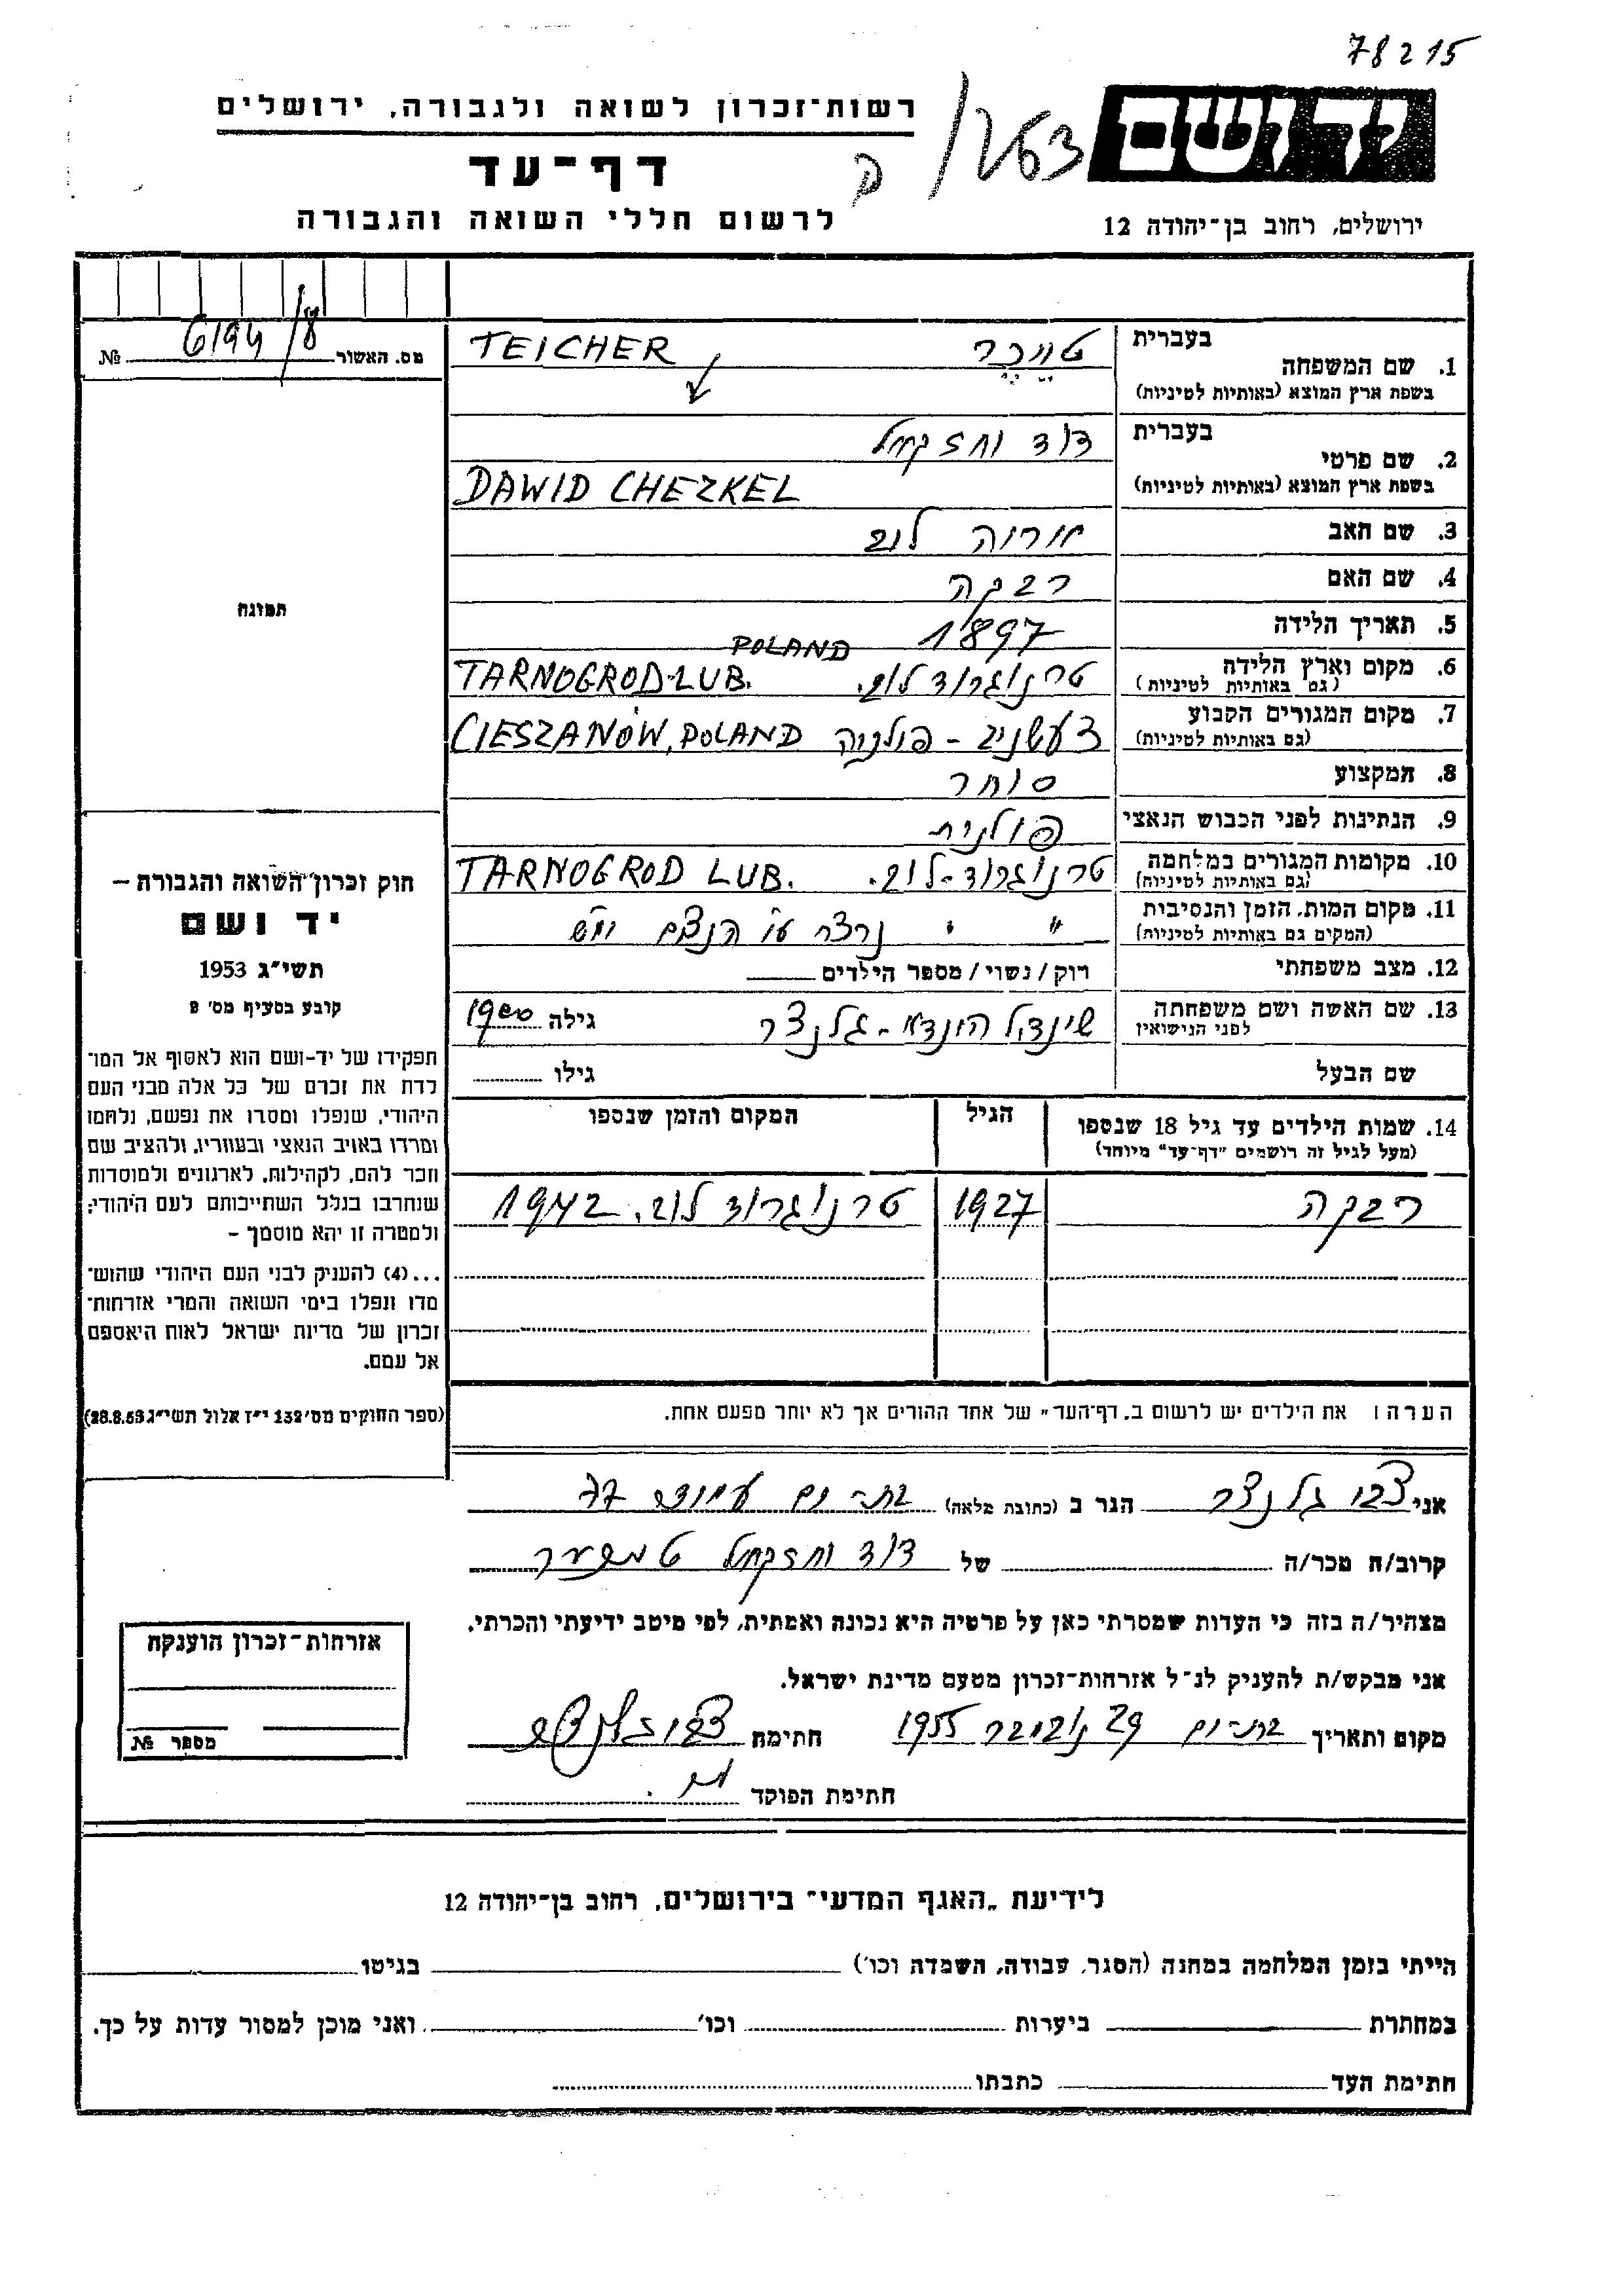 78215
רשות־זכרון לשואה ולגבורה, ירושלים
יד ושם
דף־עד
לרשום חללי השואה והגבורה
ירושלים, רחוב בן־יהודה 12
מס. האשור 6194/8 №
1. שם המשפחה
בעברית טייכר
בשפת ארץ המוצא (באותיות לטיניות) TEICHER
2. שם פרטי
בעברית דוד יחזקאל
בשפת ארץ המוצא (באותיות לטיניות) DAWID CHEZKEL
3. שם האב אריה לוב
4. שם האם רבקה
5. תאריך הלידה 1897
6. מקום וארץ הלידה טרנוגרוד לוב. TARNOGROD-LUB. POLAND
(גם באותיות לטיניות)
7. מקום המגורים הקבוע צעשניב - פולניה CIESZANÓW, POLAND
(גם באותיות לטיניות)
8. המקצוע סוחר
9. הנתינות לפני הכבוש הנאצי פולנית
10. מקומות המגורים במלחמה טרנוגרוד-לוב. TARNOGROD LUB.
(גם באותיות לטיניות)
11. מקום המות, הזמן והנסיבות " " נרצח ע"י הנאצים ימ"ש
(המקום גם באותיות לטיניות)
12. מצב משפחתי רוק/נשוי/מספר הילדים
13. שם האשה ושם משפחתה שינדל הינדא - גלנצר גילה 1900
לפני הנישואין
שם הבעל גילו
14. שמות הילדים עד גיל 18 שנספו הגיל המקום והזמן שנספו
(מעל לגיל זה רושמים "דף־עד" מיוחד)
רבקה 1927 טרנוגרוד לוב. 1942
הערה: את הילדים יש לרשום ב"דף־העד" של אחד ההורים אך לא יותר מפעם אחת.
תמונה
חוק זכרון השואה והגבורה –
יד ושם
תשי״ג 1953
קובע בסעיף מס׳ 2
תפקידו של יד-ושם הוא לאסוף אל המו־
לדת את זכרם של כל אלה מבני העם
היהודי, שנפלו ומסרו את נפשם, נלחמו
ומרדו באויב הנאצי ובעוזריו, ולהציב שם
וזכר להם, לקהילות, לארגונים ולמוסדות
שנחרבו בגלל השתייכותם לעם היהודי;
ולמטרה זו יהא מוסמך –
...(4) להעניק לבני העם היהודי שהוש־
מדו ונפלו בימי השואה והמרי אזרחות־
זכרון של מדינת ישראל לאות היאספם
אל עמם.
(ספר החוקים מס׳ 132 י״ז אלול תשי״ג 28.8.53)
אני צבי גלנצר הגר ב (כתובת מלאה) בת-ים עמידר 77
קרוב/ה מכר/ה של דוד יחזקאל טייכער
מצהיר/ה בזה כי העדות שמסרתי כאן על פרטיה היא נכונה ואמתית, לפי מיטב ידיעתי והכרתי.
אני מבקש/ת להעניק לנ״ל אזרחות־זכרון מטעם מדינת ישראל.
מקום ותאריך בת-ים 29 נובמבר 1955 חתימה צבי גלנצר
חתימת הפוקד
אזרחות־זכרון הוענקה
מספר №
לידיעת "האגף המדעי" בירושלים, רחוב בן־יהודה 12
הייתי בזמן המלחמה במחנה (הסגר, עבודה, השמדה וכו׳) בגיטו
במחתרת ביערות וכו׳ ואני מוכן למסור עדות על כך.
חתימת העד כתבתו